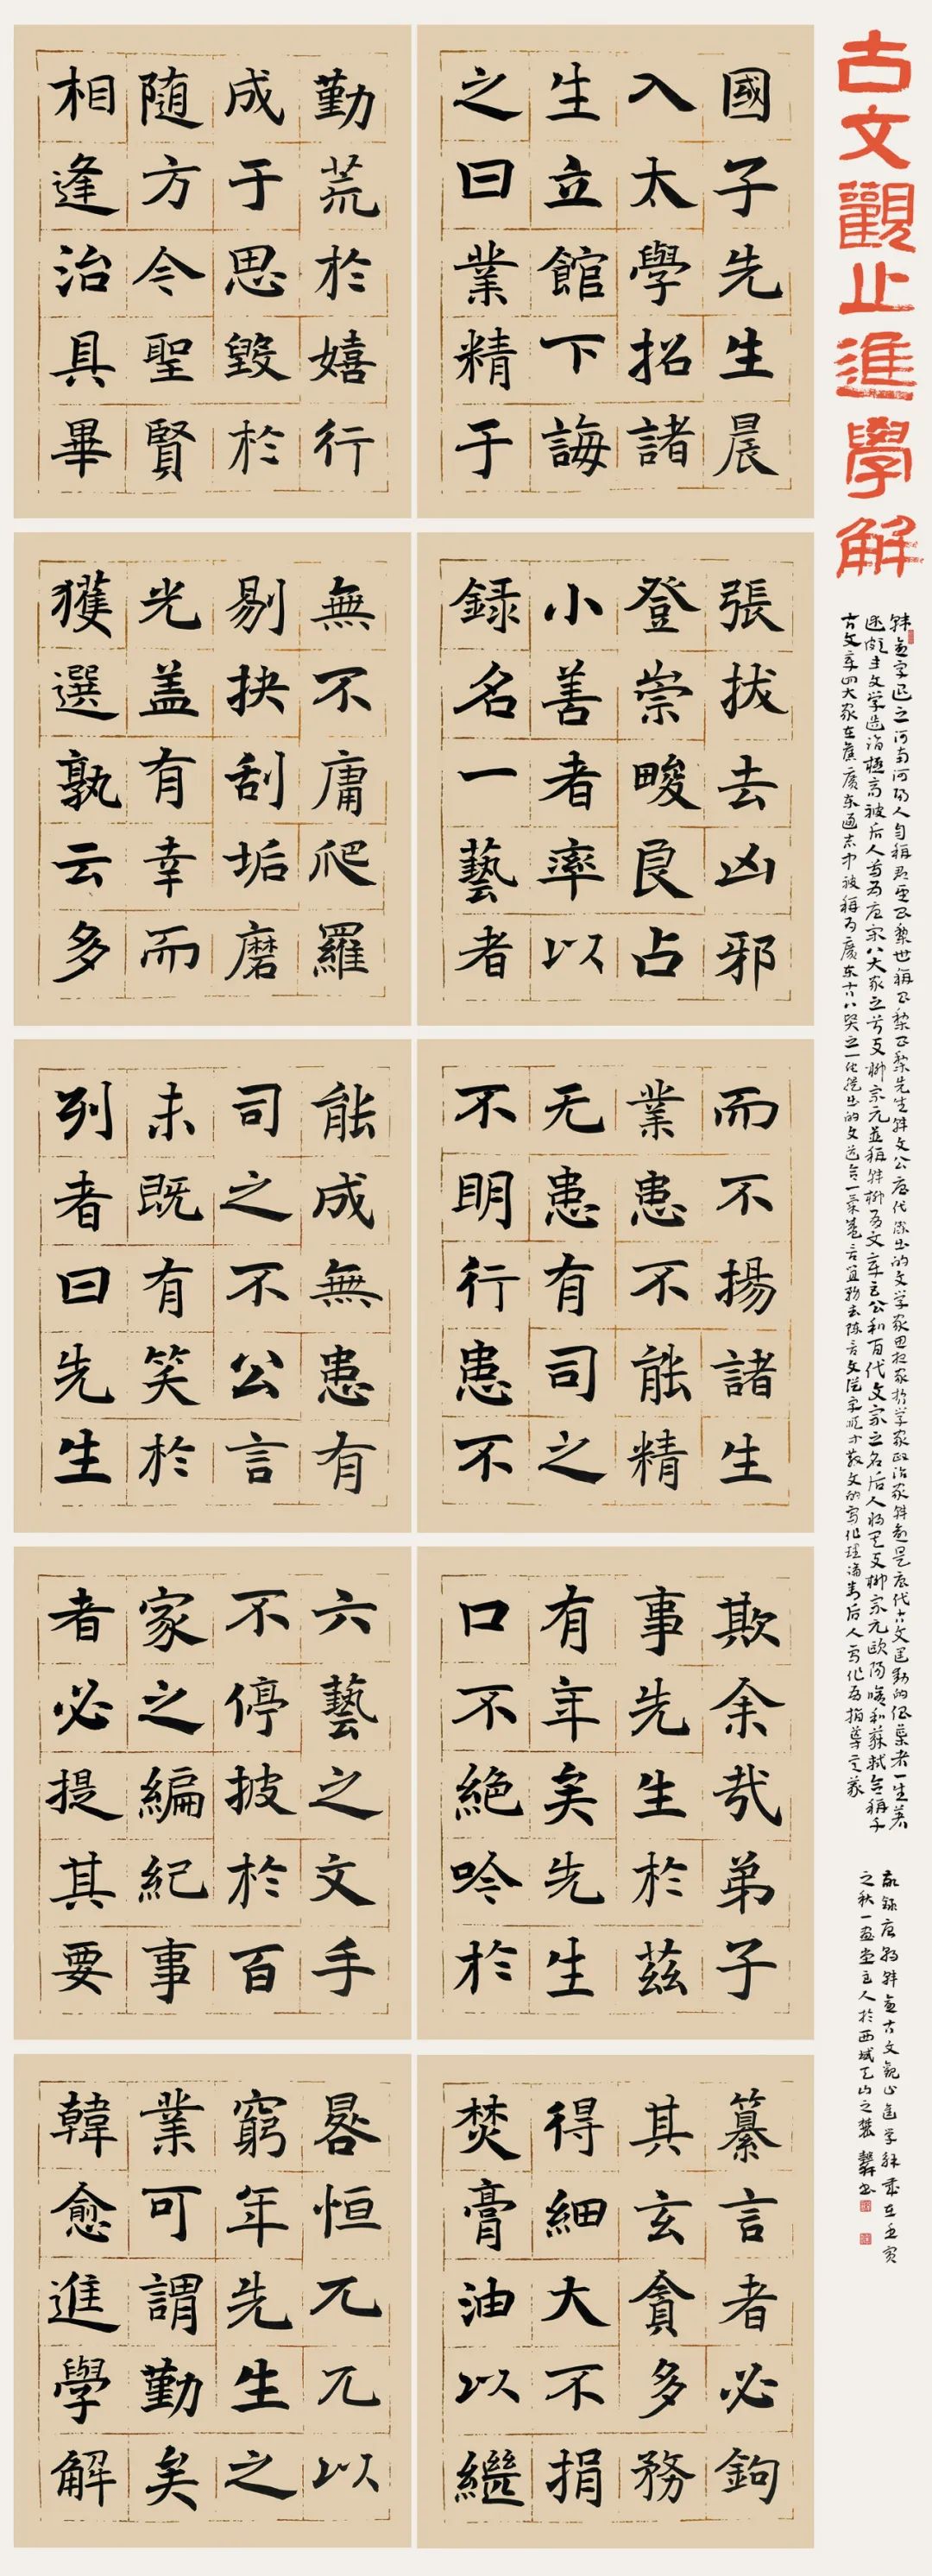 古文觀止進學解
韩愈字退之河南河阳人自称郡望昌黎世称昌黎先生韩文公唐代杰出的文学家思想家哲学家政治家韩愈是唐代古文运动的倡导者一生著
述颇丰文学造诣極高被后人尊为唐宋八大家之首与柳宗元並稱韩柳有文章巨公和百代文宗之名后人将其与柳宗元欧阳修和蘇軾合稱千
古文章四大家在舊廣东通志中被稱为廣东古八贤之一他提出的文道合一氣盛言宜務去陈言文從字顺等散文的写作理論对后人写作有指導意义
敬録唐韩愈古文觀止進学解歲在壬寅
之秋一画堂主人於西域天山之麓书
國子先生晨
入太學招諸
生立館下誨
之曰業精于
勤荒於嬉行
成于思毀於
随方今聖賢
相逢治具畢
張拔去凶邪
登崇畯良占
小善者率以
録名一藝者
無不庸爬羅
剔抉刮垢磨
光盖有幸而
獲選孰云多
而不揚諸生
業患不能精
无患有司之
不明行患不
能成無患有
司之不公言
未既有笑於
列者曰先生
欺余哉弟子
事先生於茲
有年矣先生
口不絕吟於
六藝之文手
不停披於百
家之編紀事
者必提其要
纂言者必鉤
其玄貪多務
得細大不捐
焚膏油以繼
晷恒兀兀以
窮年先生之
業可謂勤矣
韓愈進學解